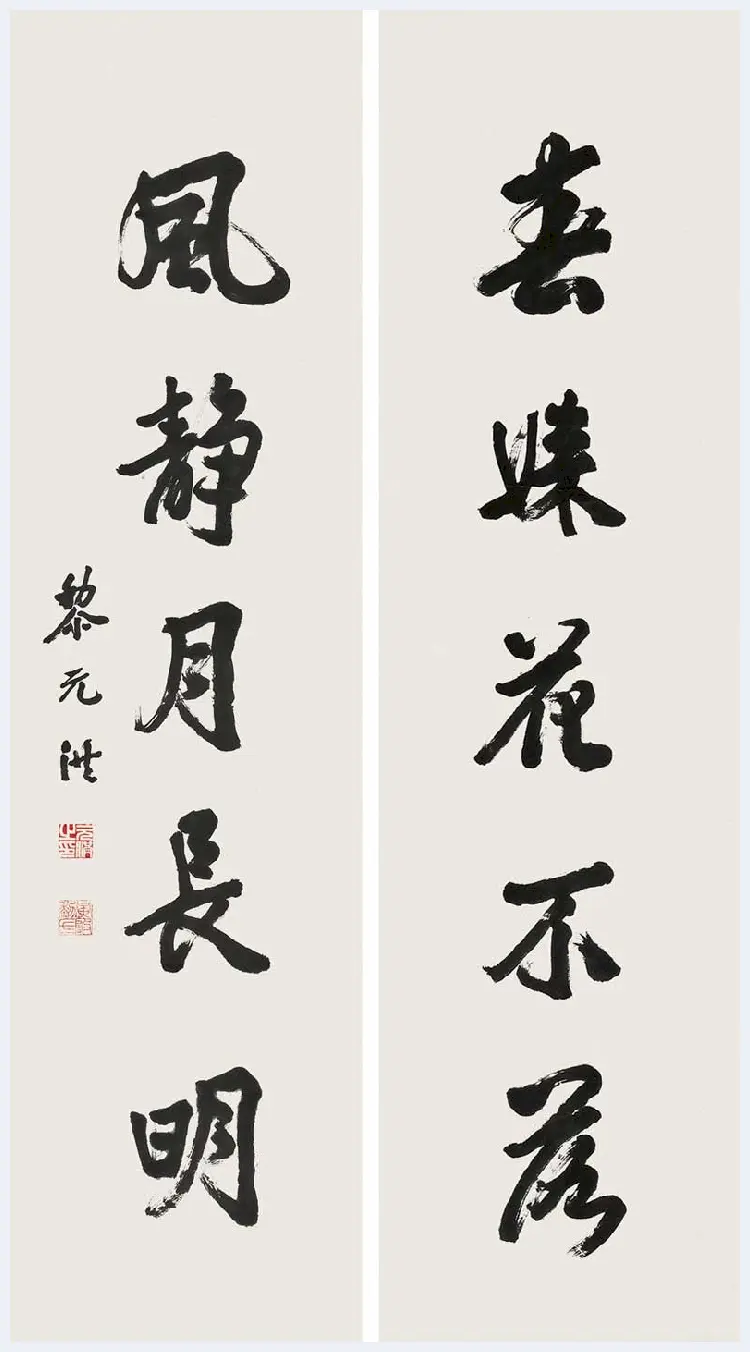 春姝花不落
風静月長明
黎元洪